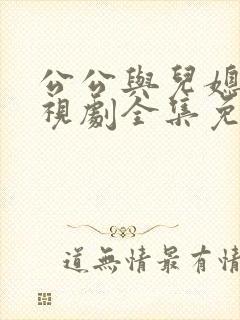 公公與兒媳
視劇全集免
道無情最有情